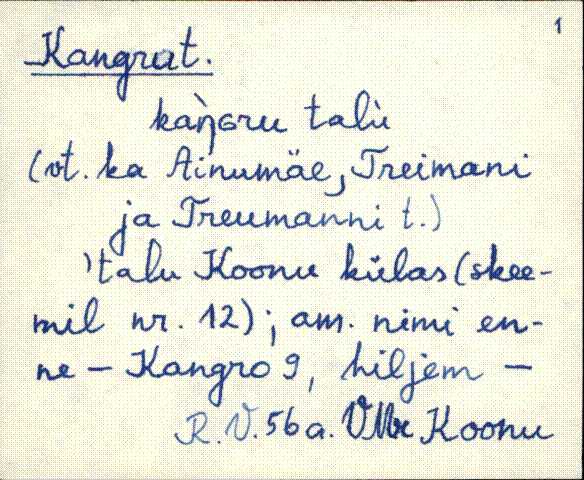 1
Kangrut.
kàŋGru talù
(vt. ka Ainumäe, Treimani
ja Treumanni t.)
'talu Koonu külas (skee-
mil nr. 12); am. nimi en-
ne — Kangro 9, hiljem —
R. V. 56 a. VMr Koonu